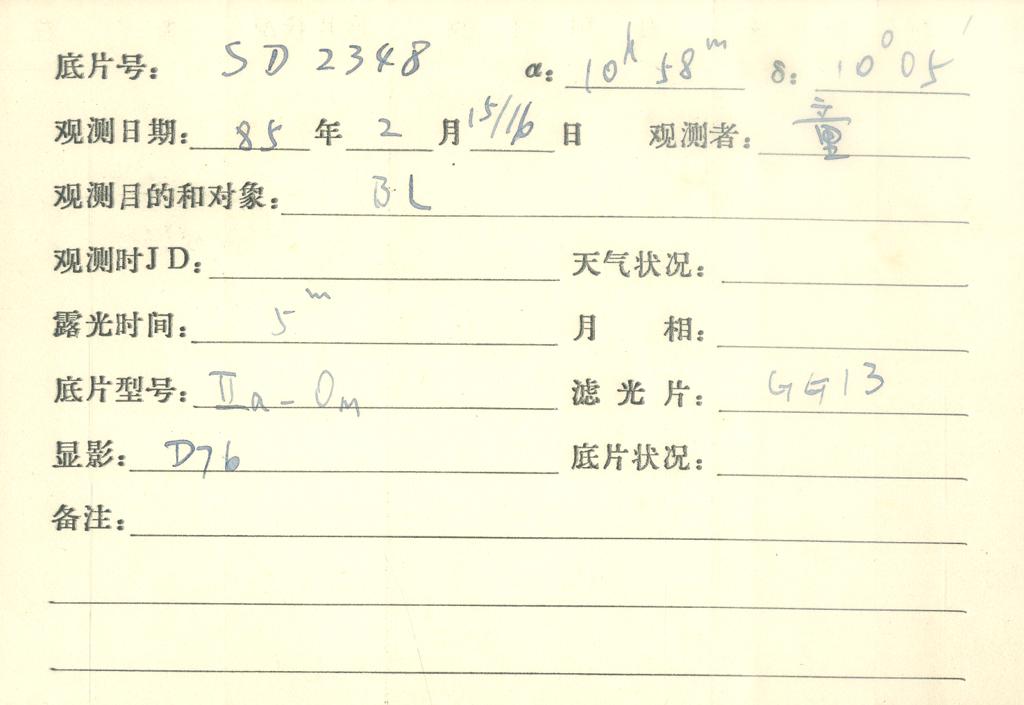 底片号: SD 2348 α: 10h 58m δ: 10°05′
观测日期: 85 年 2 月 15/16 日 观测者: 童
观测目的和对象: BL
观测时JD: 天气状况:
露光时间: 5m 月 相:
底片型号: IIa-Om 滤 光 片: GG13
显影: D76 底片状况:
备注: